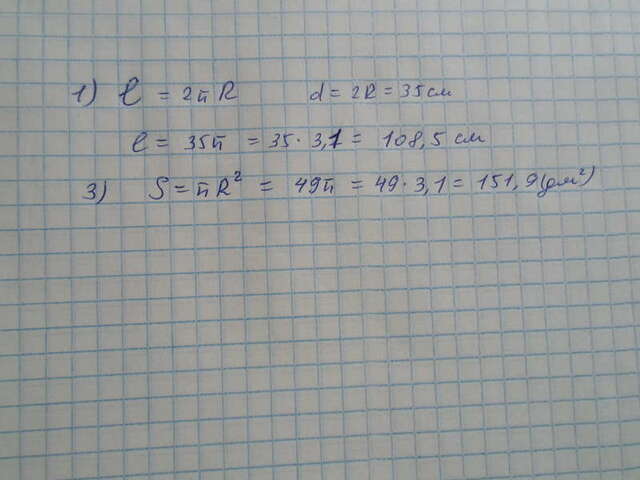 1) ℓ = 2πR d = 2R = 35 см
ℓ = 35π = 35 · 3,1 = 108,5 см
3) S = πR² = 49π = 49 · 3,1 = 151,9 (дм²)